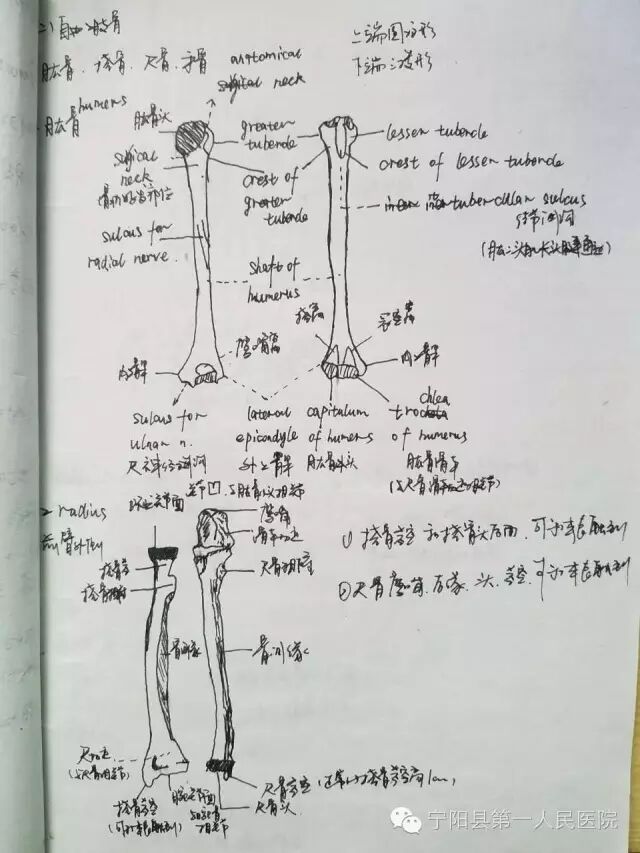 2) 自由上肢骨
肱骨、桡骨、尺骨、手骨
上端圆方形
下端三菱形
anatomical
surgical neck
肱骨 humerus
肱骨头
greater
tubercle
lesser tubercle
surgical
neck
骨折好发部位
crest of
greater
tubercle
crest of lesser tubercle
intertubercular sulcus
结节间沟
(肱二头肌长头腱通过)
sulcus for
radial nerve
shaft of
humerus
桡窝
冠突窝
鹰嘴窝
内上髁
内上髁
sulcus for
ulnar n.
尺神经沟
lateral
epicondyle
外上髁
capitulum
of humerus
肱骨小头
trochlea
of humerus
肱骨滑车
2 radius
前臂外侧
环状关节面
关节凹
鹰嘴
滑车切迹
尺骨粗隆
桡骨头
桡骨粗隆
骨间缘
骨间缘
尺切迹
(与尺骨相关节)
桡骨茎突
腕关节面
尺骨茎突
尺骨头
① 桡骨茎突和桡骨头后面,可于体表触到
② 尺骨鹰嘴、后缘、头、茎突,可于体表触到
宁阳县第一人民医院